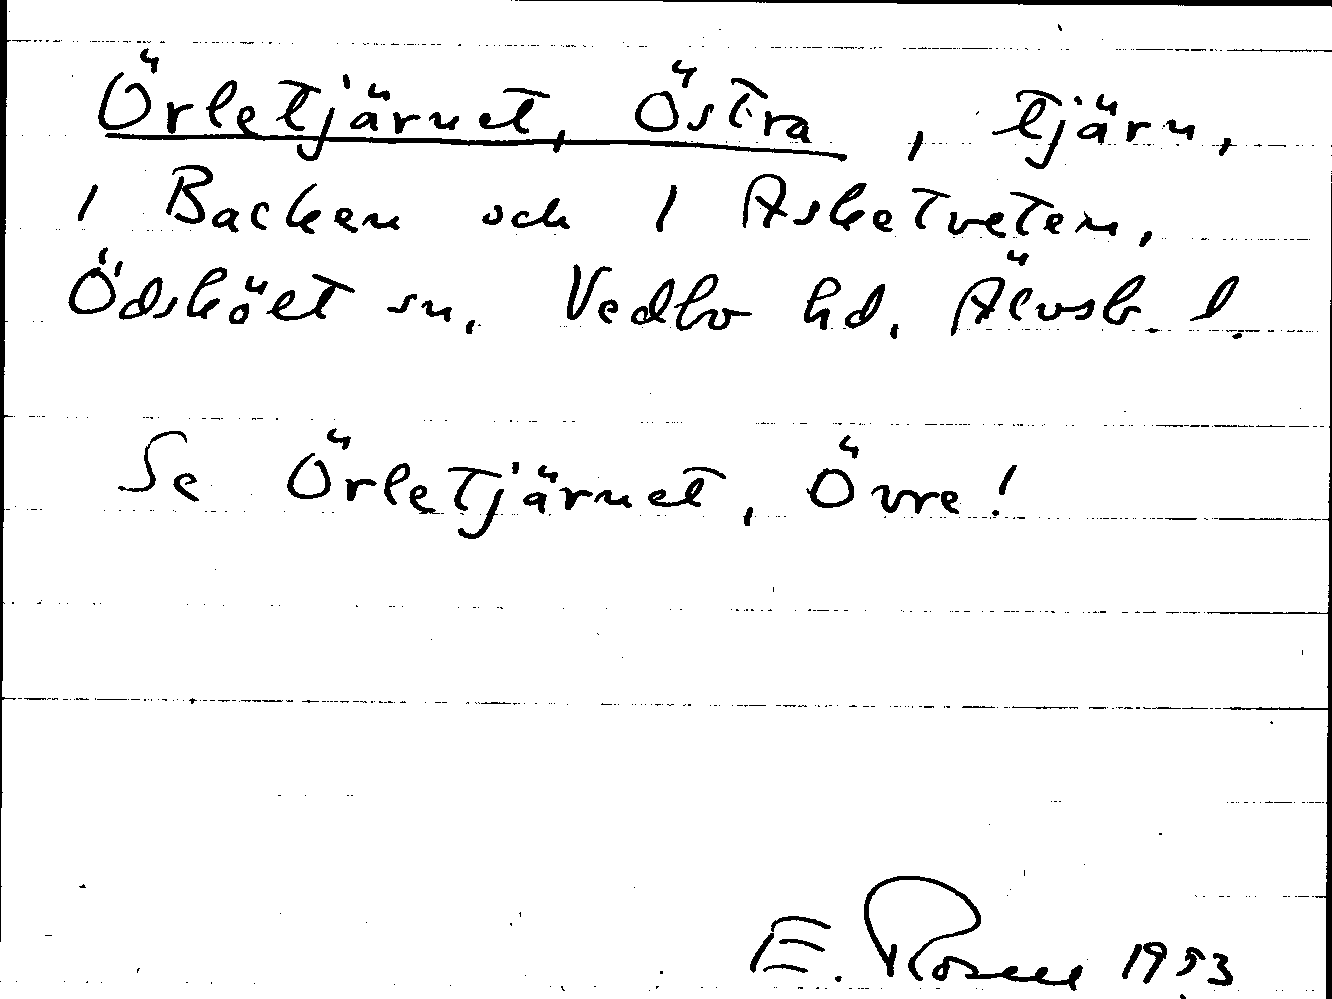 Örletjärnet, Östra, tjärn,
1 Backen och 1 Asketveten,
Ödskölt sn, Vedbo hd, Älvsb. l.
Se Örletjärnet, Övre!
E. Rosell 1953